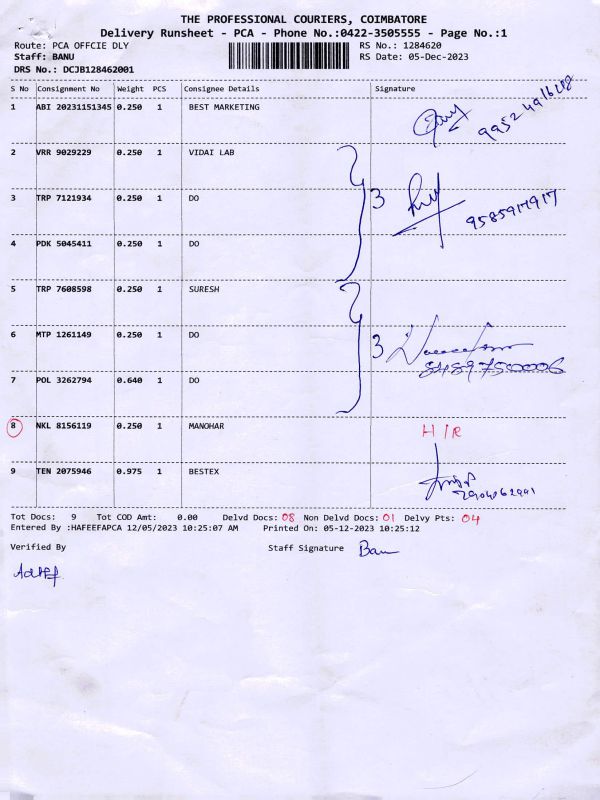 THE PROFESSIONAL COURIERS, COIMBATORE
Delivery Runsheet - PCA - Phone No.:0422-3505555 - Page No.:1
Route: PCA OFFCIE DLY RS No.: 1284620
Staff: BANU RS Date: 05-Dec-2023
DRS No.: DCJB128462001
S No Consignment No Weight PCS Consignee Details Signature
1 ABI 20231151345 0.250 1 BEST MARKETING
2 VRR 9029229 0.250 1 VIDAI LAB
3 TRP 7121934 0.250 1 DO 3 9585917917
4 PDK 5045411 0.250 1 DO
5 TRP 7608598 0.250 1 SURESH
6 MTP 1261149 0.250 1 DO 3
8489750006
7 POL 3262794 0.640 1 DO
8 NKL 8156119 0.250 1 MANOHAR H/R
9 TEN 2075946 0.975 1 BESTEX
Tot Docs: 9 Tot COD Amt: 0.00 Delvd Docs: 08 Non Delvd Docs: 01 Delvy Pts: 04
Entered By :HAFEEFAPCA 12/05/2023 10:25:07 AM Printed On: 05-12-2023 10:25:12
Verified By Staff Signature Banu